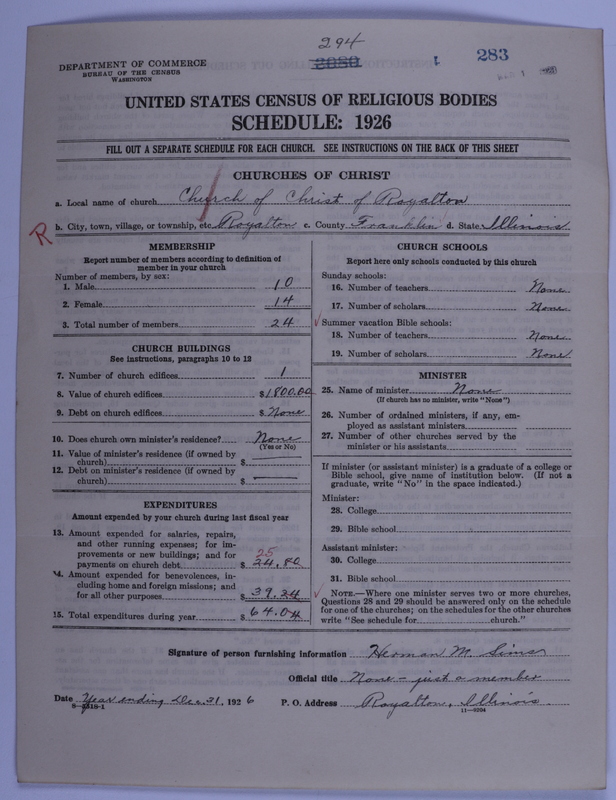 294
DEPARTMENT OF COMMERCE
BUREAU OF THE CENSUS
WASHINGTON
2080
1
283
UNITED STATES CENSUS OF RELIGIOUS BODIES
SCHEDULE: 1926
FILL OUT A SEPARATE SCHEDULE FOR EACH CHURCH. SEE INSTRUCTIONS ON THE BACK OF THIS SHEET
CHURCHES OF CHRIST
a. Local name of church Church of Christ of Royalton
R
b. City, town, village, or township, etc. Royalton c. County Franklin d. State Illinois
MEMBERSHIP
Report number of members according to definition of
member in your church
Number of members, by sex:
1. Male 10
2. Female 14
3. Total number of members 24
CHURCH BUILDINGS
See instructions, paragraphs 10 to 12
7. Number of church edifices 1
8. Value of church edifices $1800.00
9. Debt on church edifices $ None
10. Does church own minister's residence? None
(Yes or No)
11. Value of minister's residence (if owned by
church) $
12. Debt on minister's residence (if owned by
church) $
EXPENDITURES
Amount expended by your church during last fiscal year
13. Amount expended for salaries, repairs,
and other running expenses; for im-
provements or new buildings; and for
25
payments on church debt $ 24.80
14. Amount expended for benevolences, in-
cluding home and foreign missions; and
for all other purposes $ 39.24
15. Total expenditures during year $ 64.04
CHURCH SCHOOLS
Report here only schools conducted by this church
Sunday schools:
16. Number of teachers None
17. Number of scholars None
Summer vacation Bible schools:
18. Number of teachers None
19. Number of scholars None
MINISTER
25. Name of minister None
(If church has no minister, write "None")
26. Number of ordained ministers, if any, em-
ployed as assistant ministers
27. Number of other churches served by the
minister or his assistants
If minister (or assistant minister) is a graduate of a college or
Bible school, give name of institution below. (If not a
graduate, write "No" in the space indicated.)
Minister:
28. College
29. Bible school
Assistant minister:
30. College
31. Bible school
NOTE.—Where one minister serves two or more churches,
Questions 28 and 29 should be answered only on the schedule
for one of the churches; on the schedules for the other churches
write "See schedule for church."
Signature of person furnishing information Herman M. Sims
Official title None - just a member
Date Year ending Dec. 31, 1926 P. O. Address Royalton, Illinois
11—9204